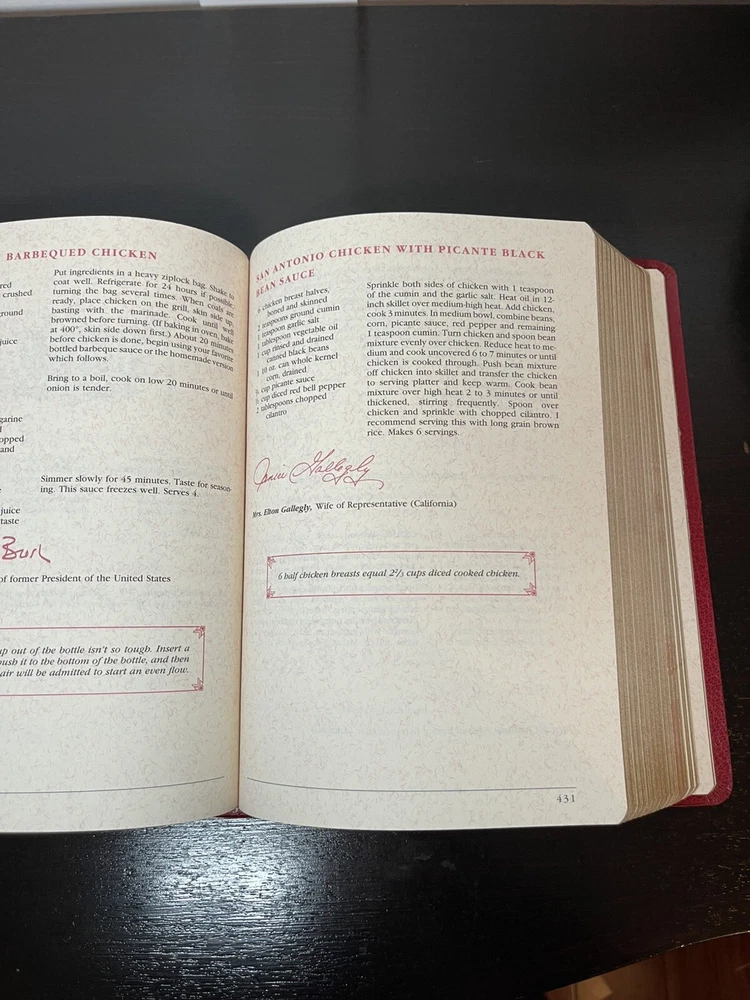 BARBEQUED CHICKEN
red
crushed
ground
juice
Put ingredients in a heavy ziplock bag. Shake to
coat well. Refrigerate for 24 hours if possible,
turning the bag several times. When coals are
ready, place chicken on the grill, skin side up,
basting with the marinade. Cook until well
browned before turning. (If baking in oven, bake
at 400°, skin side down first.) About 20 minutes
before chicken is done, begin using your favorite
bottled barbeque sauce or the homemade version
which follows.
Bring to a boil, cook on low 20 minutes or until
onion is tender.
garine
opped
and
Simmer slowly for 45 minutes. Taste for season-
ing. This sauce freezes well. Serves 4.
juice
taste
Bush
of former President of the United States
up out of the bottle isn't so tough. Insert a
push it to the bottom of the bottle, and then
air will be admitted to start an even flow.
SAN ANTONIO CHICKEN WITH PICANTE BLACK
BEAN SAUCE
6 chicken breast halves,
boned and skinned
2 teaspoons ground cumin
teaspoon garlic salt
tablespoon vegetable oil
cup rinsed and drained
canned black beans
10 oz. can whole kernel
corn, drained
cup picante sauce
cup diced red bell pepper
2 tablespoons chopped
cilantro
Sprinkle both sides of chicken with 1 teaspoon
of the cumin and the garlic salt. Heat oil in 12-
inch skillet over medium-high heat. Add chicken,
cook 3 minutes. In medium bowl, combine beans,
corn, picante sauce, red pepper and remaining
1 teaspoon cumin. Turn chicken and spoon bean
mixture evenly over chicken. Reduce heat to me-
dium and cook uncovered 6 to 7 minutes or until
chicken is cooked through. Push bean mixture
off chicken into skillet and transfer the chicken
to serving platter and keep warm. Cook bean
mixture over high heat 2 to 3 minutes or until
thickened, stirring frequently. Spoon over
chicken and sprinkle with chopped cilantro. I
recommend serving this with long grain brown
rice. Makes 6 servings.
Janice Gallegly
Mrs. Elton Gallegly, Wife of Representative (California)
6 half chicken breasts equal 2 2/3 cups diced cooked chicken.
431